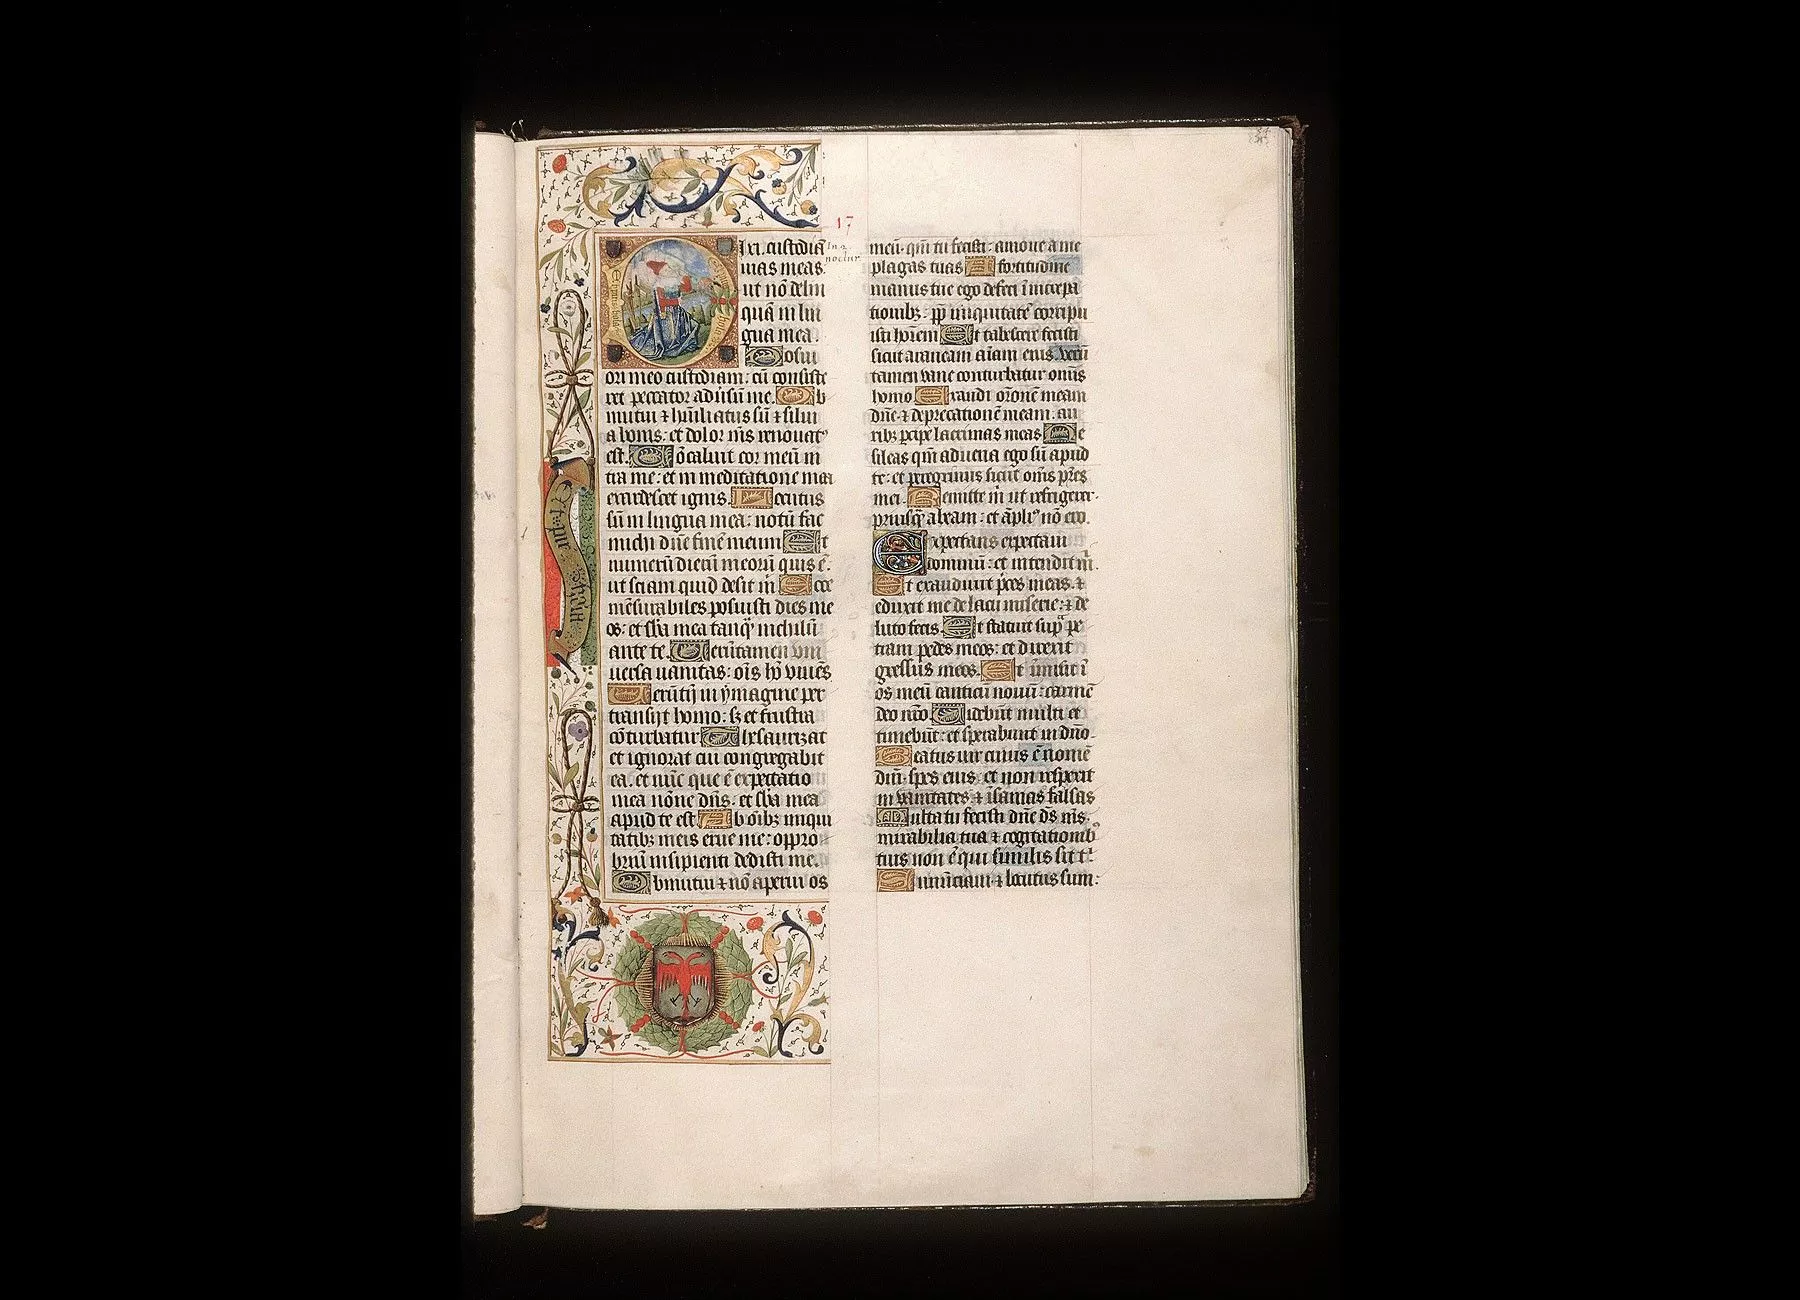 17
In 2.
noctur.
Dixi. custodiā
uias meas:
ut nō delin
quā in lin
gua mea.
Posui
ori meo custodiam: cū consiste
ret peccator aduersū me. Ob
mutui ⁊ humiliatus sū ⁊ silui
a bonis: et dolor m̄s renouatꝰ
est. Cōcaluit cor meū in
tra me: et in meditatione mea
exardescet ignis. Locutus
sū in lingua mea: notū fac
michi dn̄e finē meum Et
numerū dierū meorū quis ē.
ut sciam quid desit m̄ Ecce
mēsurabiles posuisti dies me
os: et sb̄a mea tanq̄ nichilū
ante te. Uerūtamen vni
uersa uanitas: oīs hō viuēs
Uerūtn̄ in ymagine per
transijt homo: sꝫ et frustra
cōturbatur Thesaurizat
et ignorat cui congregabit
ea. et nūc que ē expectatio
mea nōne dn̄s: et sb̄a mea
apud te est Ab oībꝫ iniqui
tatibꝫ meis erue me: oppro
briū insipienti dedisti me.
Obmutui ⁊ nō aperui os
meū. qm̄ tu fecisti: amoue a me
plagas tuas A fortitudine
manus tue ego defeci ī increpa
tionibꝫ: pp̄ iniquitatē corripu
isti hoīem Et tabescere fecisti
sicut araneam aīam eius verū
tamen vane conturbatur omīs
homo. Exaudi orōnē meam
dn̄e. ⁊ deprecationē meam: au
ribꝫ ꝑcipe lacrimas meas Ne
sileas qm̄ aduena ego sū apud
te: et peregrinus sicut om̄s pr̄es
mei. Remitte m̄ ut refrigerer.
priusq̄ abeam: et āpliꝰ nō ero.
Expectans expectaui
dominū: et intendit m̄.
Et exaudiuit p̄ces meas. ⁊
eduxit me de lacu miserie: ⁊ de
luto fecis. Et statuit supᷓ pe
tram pedes meos: et direxit
gressus meos. Et īmisit ī
os meū canticū nouū: carmē
deo nr̄o Uidebūt multi et
timebūt: et sperabunt in dn̄o.
Beatus uir cuius ē nomē
dn̄i spes eius: et non respexit
in vanitates ⁊ īsanias falsas
Multa tu fecisti dn̄e ds̄ m̄s.
mirabilia tua ⁊ cogitationibꝰ
tuis non ē qui similis sit t̄.
Annūciaui ⁊ locutus sum: